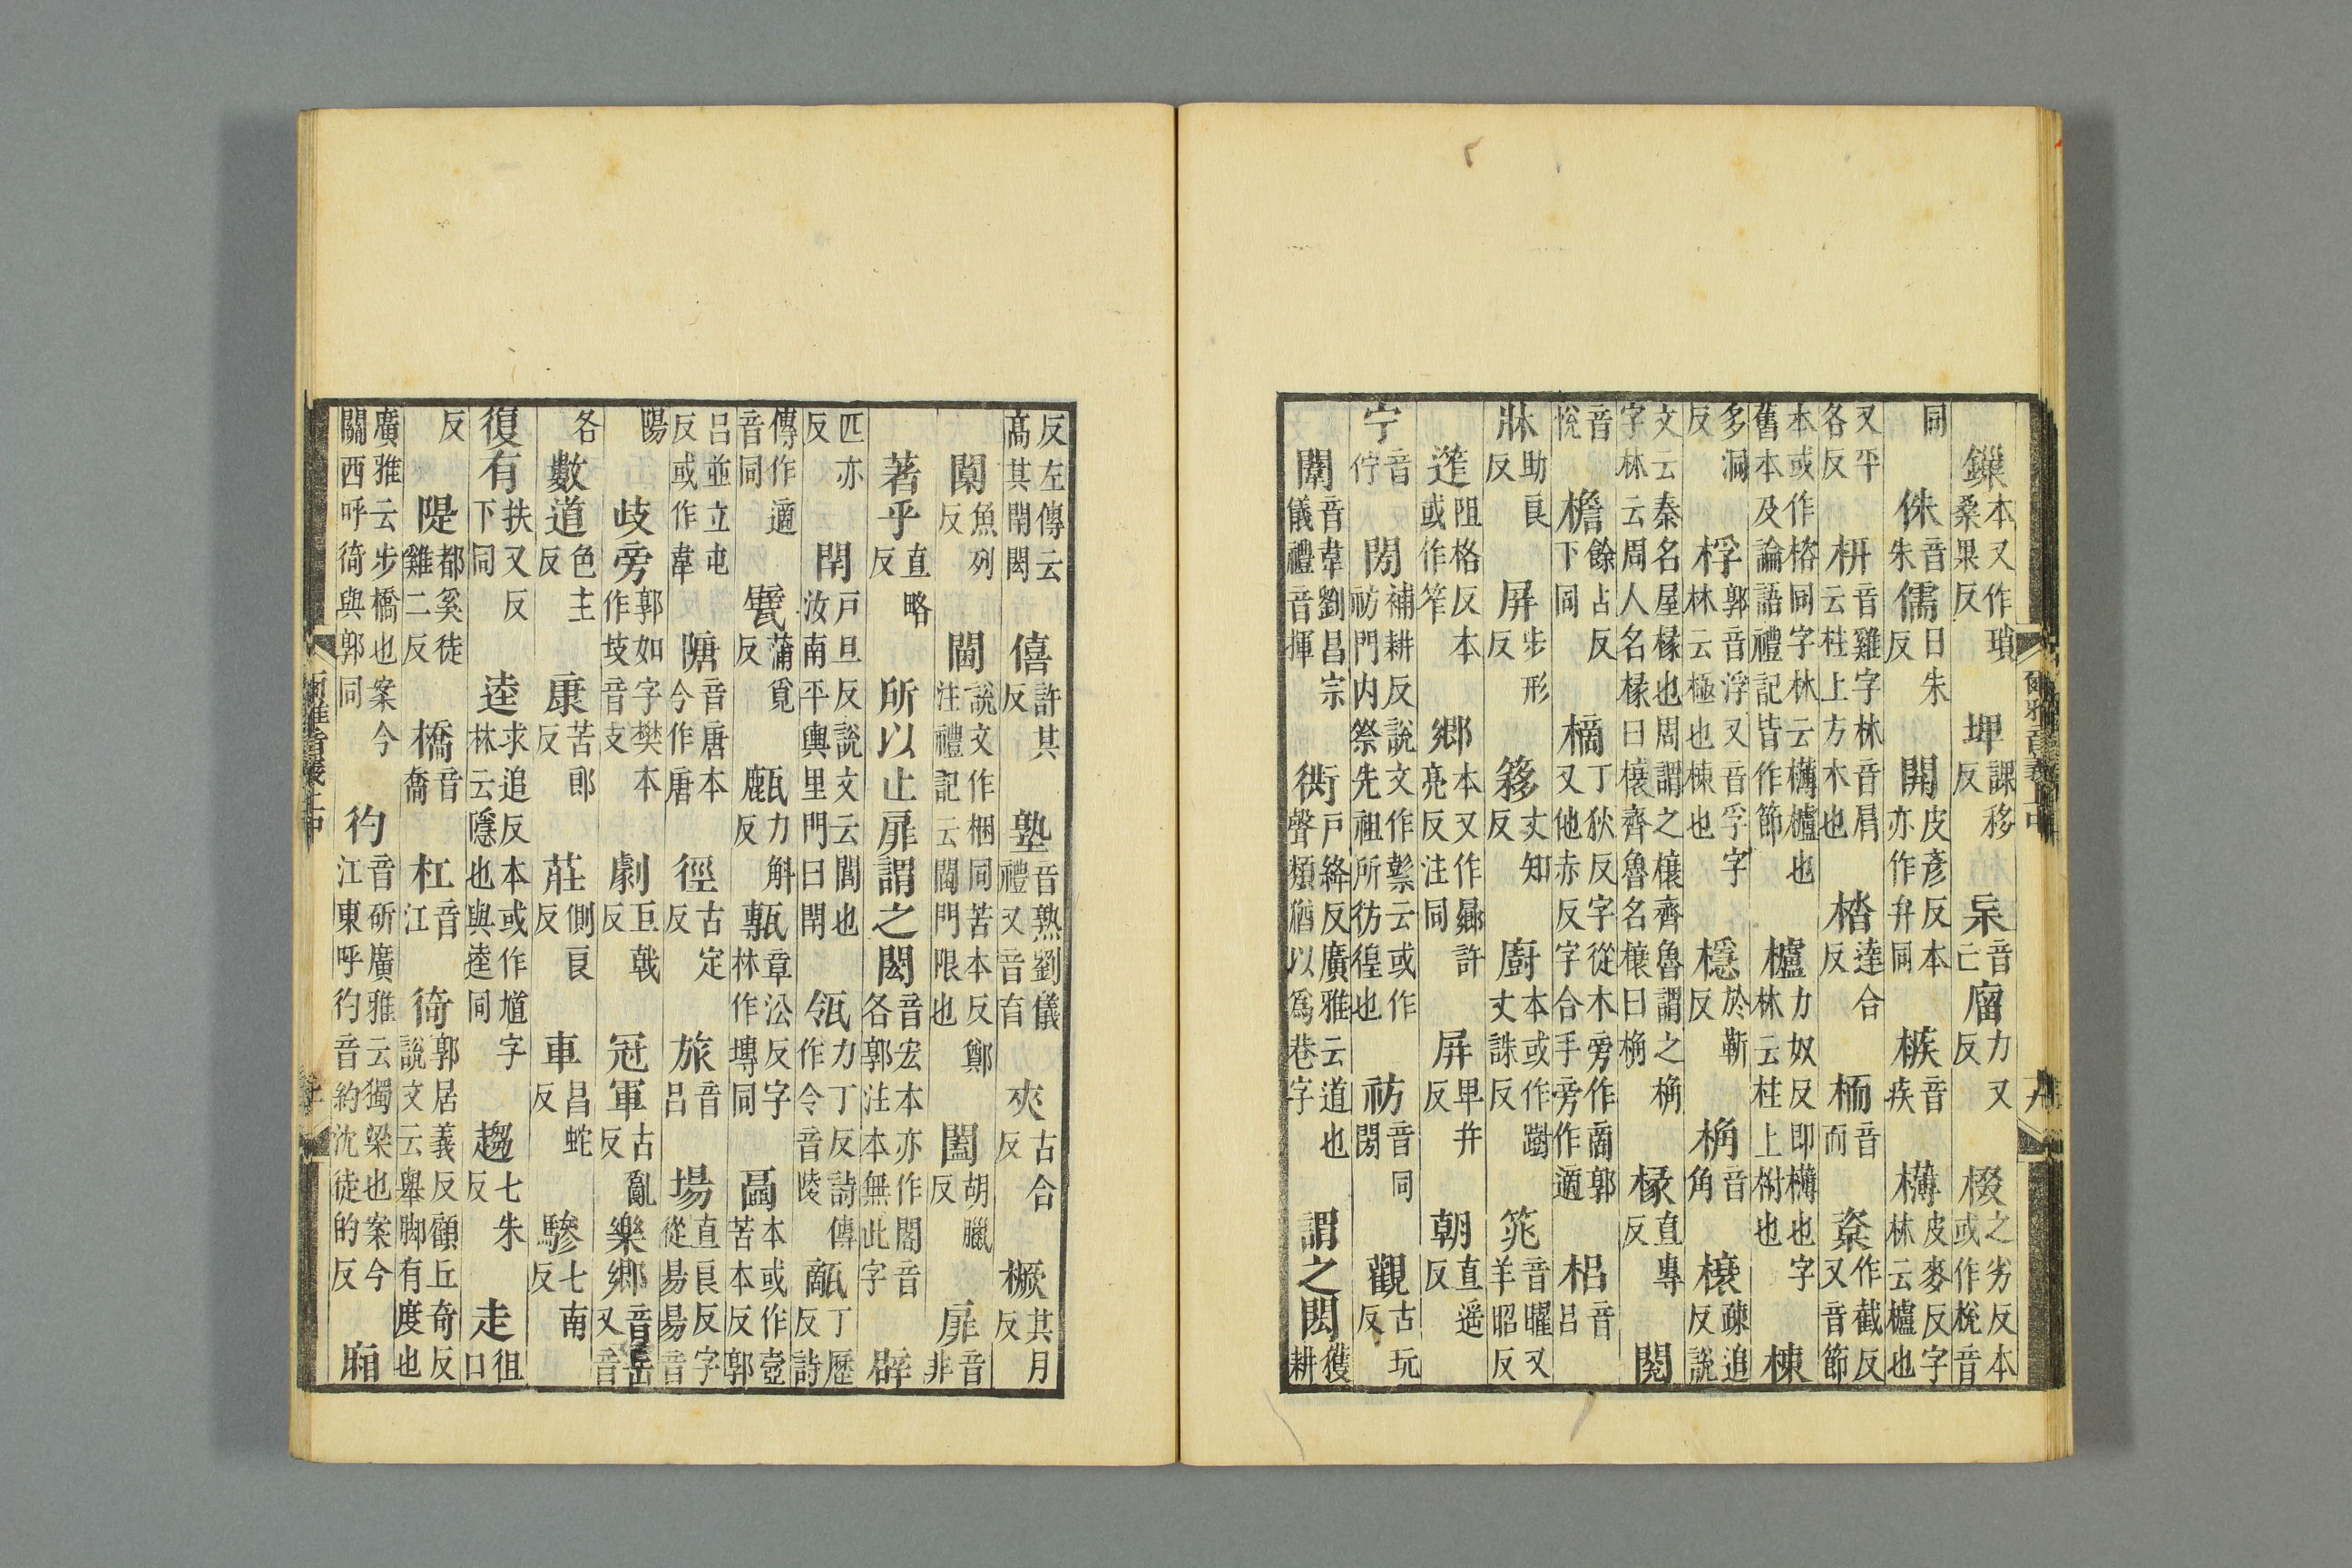 爾雅音義上中
鏁本又作瑣桑果反 埤課移反 杗音亡 廇力又反 棳之劣反本或作梲音
同 侏音朱 儒日朱反 開皮彥反本亦作弁同 槉音疾 欂皮麥反字林云櫨也
又平各反 枅音雞字林音肩云柱上方木也 㭼達合反 栭音而 楶作截反又音節
本或作㮞同字林云欂櫨也舊本及論語禮記皆作節 櫨力奴反即欂也字林云柱上柎也 棟
多洞反 桴郭音浮又音孚字林云極也棟也 檼於靳反 桷音角 榱疎追反說
文云秦名屋椽也周謂之榱齊魯謂之桷字林云周人名椽曰榱齊魯名榱曰桷 椽直專反 閱
音悅 檐餘占反下同 樀丁狄反字從木旁作啇郭又他赤反字合手旁作適 梠音呂
牀助良反 屏步形反 簃丈知反 廚本或作躕丈誅反 筄音曜又羊昭反
迮阻格反本或作笮 鄉本又作曏許亮反注同 屏卑并反 朝直遥反
宁音佇 閍補耕反說文作䄫云或作祊門内祭先祖所彷徨也 祊音同閍 觀古玩反
闈音韋劉昌宗儀禮音揮 衖戶絳反廣雅云道也聲類猶以爲巷字 謂之閎獲耕
反左傳云高其閈閎 僖許其反 塾音熟劉儀禮又音育 夾古合反 橛其月反
闑魚列反 閫說文作梱同苦本反鄭注禮記云閫門限也 闔胡臘反 扉音非
著乎直略反 所以止扉謂之閎音宏本亦作閣音各郭注本無此字 辟
匹亦反 閈戶旦反說文云閭也汝南平輿里門曰閈 瓴力丁反詩傳作令音陵 甋丁歷反詩
傳作適音同 甓蒲覓反 㼾力斛反 甎章沿反字林作塼同 壼本或作壺苦本反郭
呂並立屯反或作韋 隚音唐本今作唐 徑古定反 旅音呂 場直良反字從昜昜音
陽 歧旁郭如字樊本作岐音支 劇巨戟反 冠軍古亂反 樂鄉音岳又音
各 數道色主反 康苦郎反 莊側良反 車昌蛇反 驂七南反
復有扶又反下同 逵求追反本或作馗字林云隱也與逵同 趨七朱反 走徂口
反 隄都奚徒雞二反 橋音喬 杠音江 徛郭居義反顧丘奇反說文云舉脚有度也
廣雅云步橋也案今關西呼徛與郭同 彴音斫廣雅云獨梁也案今江東呼彴音約沈徒的反 廂
爾雅音義上中